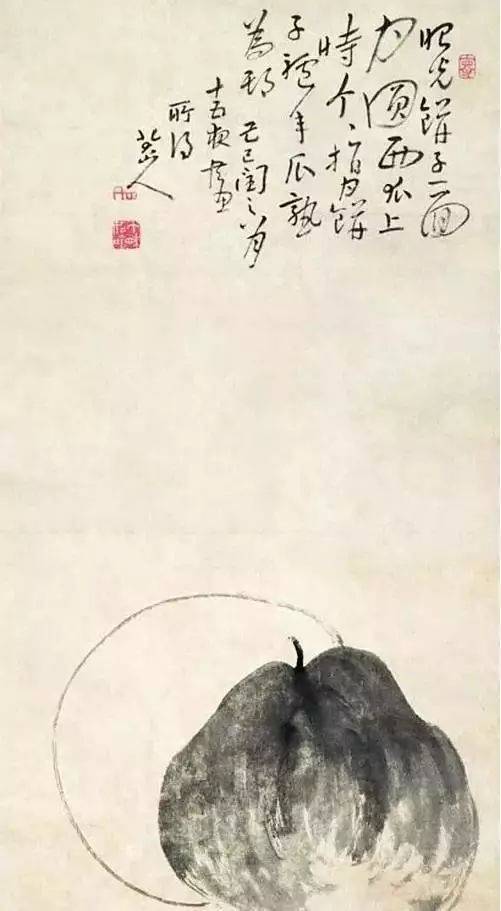 眼光餅子一面
月圓西瓜上
時个〻指月餅
子驢年瓜熟
為期 己巳閏之八月
十五夜畫
所得
八大山人